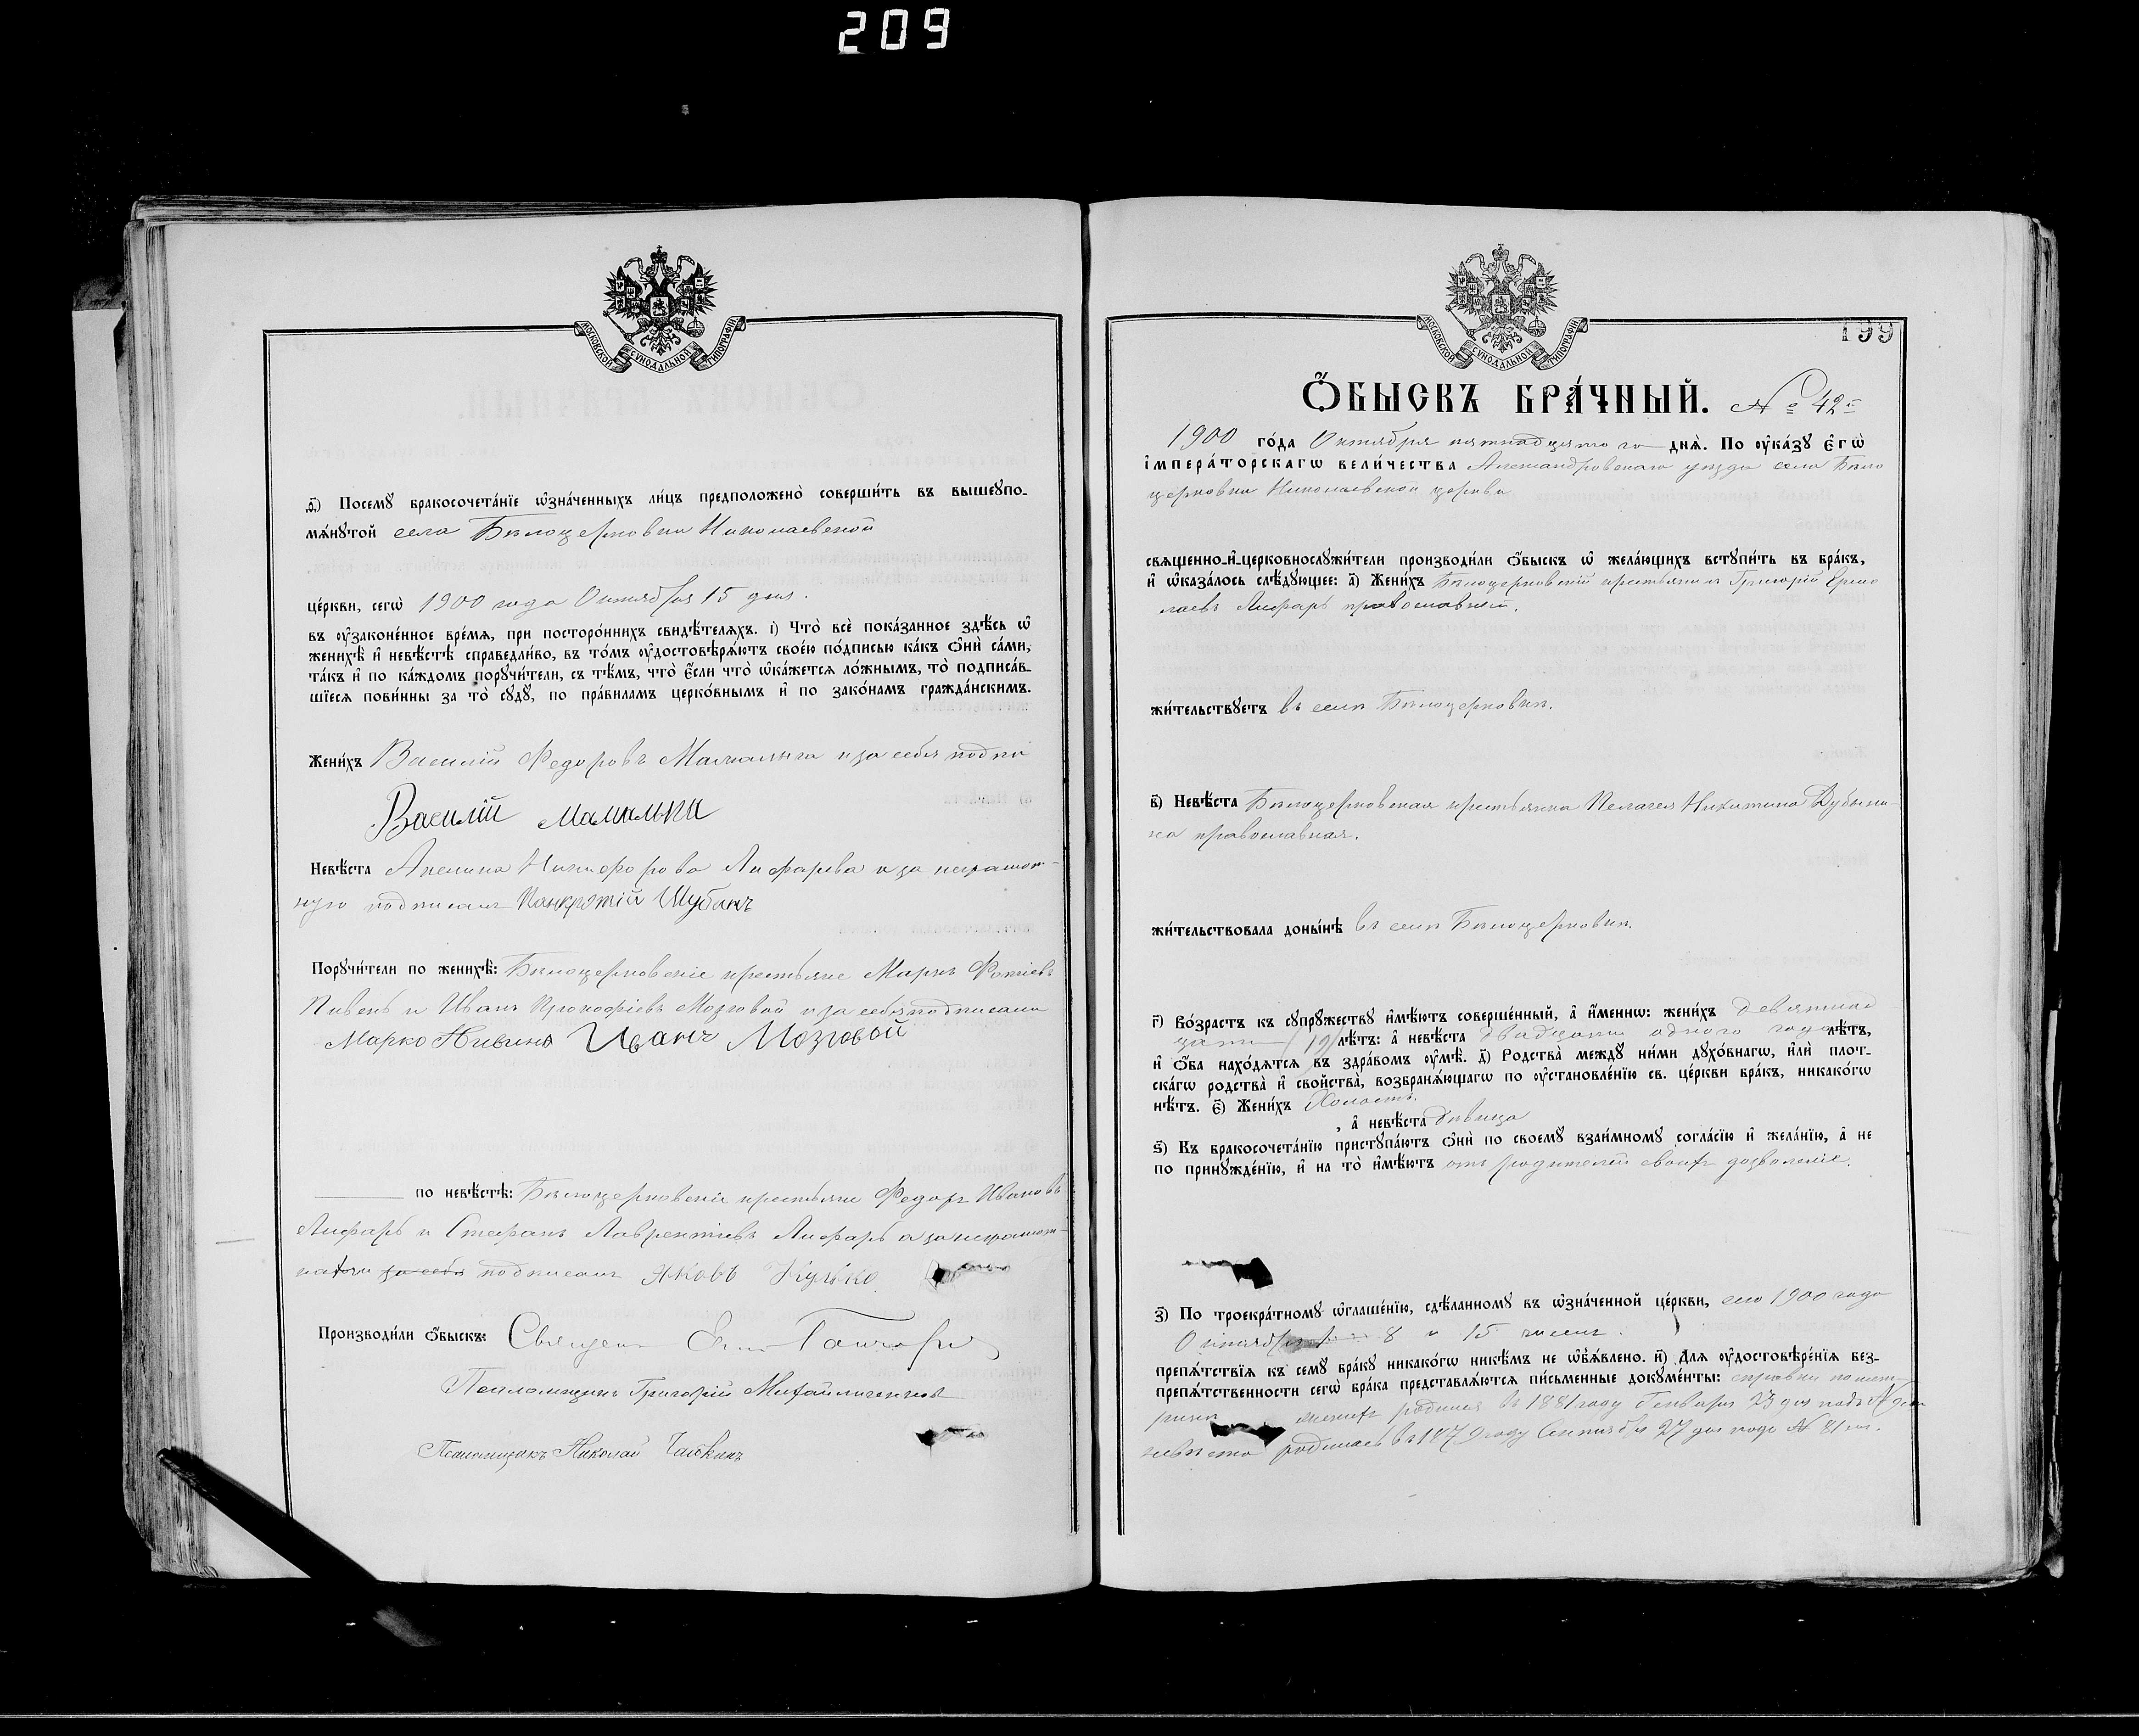 209
МОСКОВСКОЙ СѴНОДАЛЬНОЙ ТИПОГРАФІИ
ѳ҃) Посемꙋ бракосочета́нїе ѡ҆зна́ченныхъ ли́цъ предположено̀ соверши́ть въ вышеꙋпо-
мѧ́нꙋтой села Бѣлоцерковки Николаевской
це́ркви, сегѡ̀ 1900 года Октября 15 дня.
въ ᲂу҆законе́нное вре́мѧ, при посторо́ннихъ свидѣ́телѧхъ. і҃) Что̀ всѐ пока́занное здѣ́сь ѡ҆
женихѣ̀ и҆ невѣ́стѣ справедли́во, въ то́мъ ᲂу҆достовѣрѧ́ютъ свое́ю по́дписью ка́къ ѻ҆нѝ са́ми,
та́къ и҆ по ка́ждомъ порꙋчи́тели, съ тѣ́мъ, что̀ є҆́сли что̀ ѡ҆ка́жетсѧ ло́жнымъ, то̀ подписа́в-
шїесѧ пови́нны за то̀ сꙋдꙋ̀, по пра́виламъ церко́внымъ и҆ по зако́намъ гражда́нскимъ.
Жени́хъ Василій Федоровъ Мамалыга и за себя подпи
Василій Мамалыги
Невѣ́ста Акелина Никифорова Лифарева а за неграмот-
ную подписалъ Панкратій Шубакъ
Порꙋчи́тели по женихѣ̀: Бѣлоцерковскіе крестьяне Маркъ Фотіевъ
Пивень и Иванъ Прокофіевъ Мозговой и за себя подписали
Марко Пивинь Иванъ Мозговой
по невѣ́стѣ: Бѣлоцерковскіе крестьяне Федоръ Ивановъ
Лифарь и Стефанъ Лаврентіевъ Лифарь а за неграмот-
ныхъ за себя подписалъ Яковъ Кулько
Производи́ли ѻ҆́быскъ: Священ
Псаломщикъ Григорій Михайличенко
Псаломщикъ Николай
МОСКОВСКОЙ СѴНОДАЛЬНОЙ ТИПОГРАФІИ
199
Ѻ҆́БЫСКЪ БРА́ЧНЫЙ. № 42й
1900 го́да Октября пятнадцятого днѧ̀. По ᲂу҆ка́зꙋ є҆гѡ̀
і҆мпера́торскагѡ вели́чества Александровскаго уѣзда села Бѣло
церковки Николаевской церкви
свѧщенно-и҆-церковнослꙋжи́тели производи́ли ѻ҆́быскъ ѡ҆ жела́ющихъ встꙋпи́ть въ бра́къ,
и҆ ѡ҆каза́лось слѣ́дꙋющее: а҃) Жени́хъ Бѣлоцерковскій крестьянинъ Григорій Ермо
лаевъ Лифарь православный.
жи́тельствꙋетъ въ селѣ Бѣлоцерковкѣ.
в҃) Невѣ́ста Бѣлоцерковская крестьянка Пелагея Никитина Дубыни-
на православная.
жи́тельствовала доны́нѣ въ селѣ Бѣлоцерковкѣ.
г҃) Во́зрастъ къ сꙋпрꙋжествꙋ и҆мѣ́ютъ соверше́нный, а҆ и҆́меннѡ: жени́хъ девятнад
цати (19) лѣ́тъ: а҆ невѣ́ста двадцати одного года лѣ́тъ,
и҆ ѻ҆́ба нахо́дѧтсѧ въ здра́вомъ ᲂу҆мѣ̀. д҃) Родства̀ междꙋ̀ ни́ми дꙋхо́внагѡ, и҆лѝ плот-
ска́гѡ родства̀ и҆ сво́йства̀, возбранѧ́ющагѡ по ᲂу҆становле́нїю св. це́ркви бра́къ, никако́гѡ
нѣ́тъ. є҃) Жени́хъ Холостъ.
, а҆ невѣ́ста дѣвица
ѕ҃) Къ бракосочета́нїю пристꙋпа́ютъ ѻ҆нѝ по своемꙋ̀ взаи́мномꙋ согла́сїю и҆ жела́нїю, а҆ не
по принꙋжде́нїю, и҆ на то̀ и҆мѣ́ютъ отъ родителей своихъ дозволеніе.
з҃) По троекра́тномꙋ ѡ҆глаше́нїю, сдѣ́ланномꙋ въ ѡ҆зна́ченной це́ркви, сего 1900 года
Октября 8 и 15 чиселъ.
препѧ́тствїѧ къ семꙋ̀ бра́кꙋ никако́гѡ никѣ́мъ не ѡ҆б̾ѧ́влено. и҃) Длѧ ᲂу҆достовѣре́нїѧ без-
препѧ́тственности сегѡ̀ бра́ка представлѧ́ютсѧ пи́сьменные докꙋме́нты: справки по мет-
рикѣ женихъ родился въ 1881 году Генваря 23 дня подъ №
невѣста родилась въ 1879 году Сентября 27 дня подъ № 81